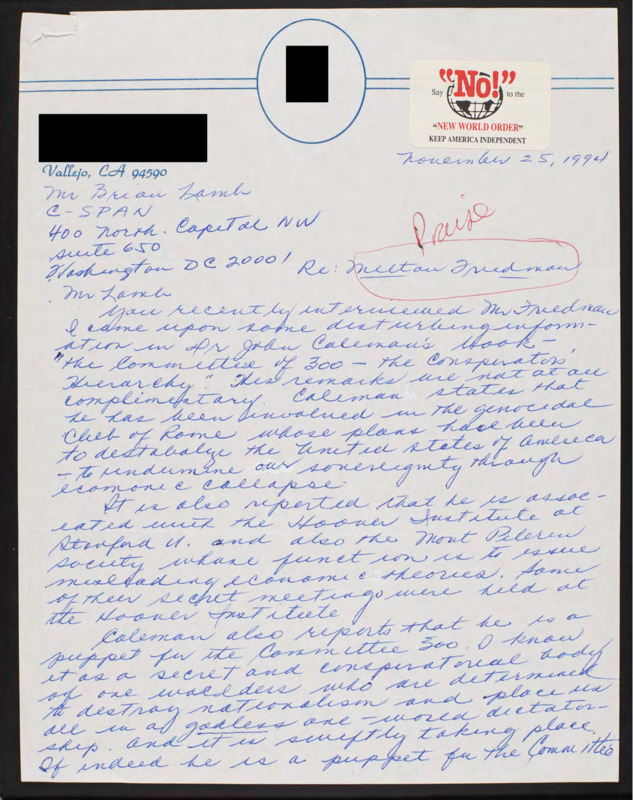 Say “Nō!” to the
“NEW WORLD ORDER”
KEEP AMERICA INDEPENDENT
Vallejo, CA 94590
November 25, 1994
Mr Brian Lamb
C-SPAN
400 North. Capital NW
Suite 650
Washington DC 20001
Praise
Re: Melton Friedman
Mr Lamb
You recently interviewed Mr Friedman
I came upon some disturbing inform-
ation in Dr John Coleman's book -
"the Committee of 300 - the Conspirators'
Hierarchy". His remarks are not at all
complimentary. Coleman states that
he has been involved in the genocidal
Club of Rome whose plans have been
to destabalize the United States of America
- to undumine our sovereignty through
ecomonic collapse.
It is also reported that he is assoc-
eated with the Hoover Institute at
Stanford U. and also the Mont Pelerin
society whose function is to issue
misleading economic theories. Some
of their secret meetings were held at
the Hoover Institute
Coleman also reports that he is a
puppet for the Committee 300. I know
it as a secret and conspiratorial body
of one worlders who are determined
to destroy nationalism and place us
all in a godless one-world dictator-
ship. And it is swiftly taking place.
If indeed he is a puppet for the Committee